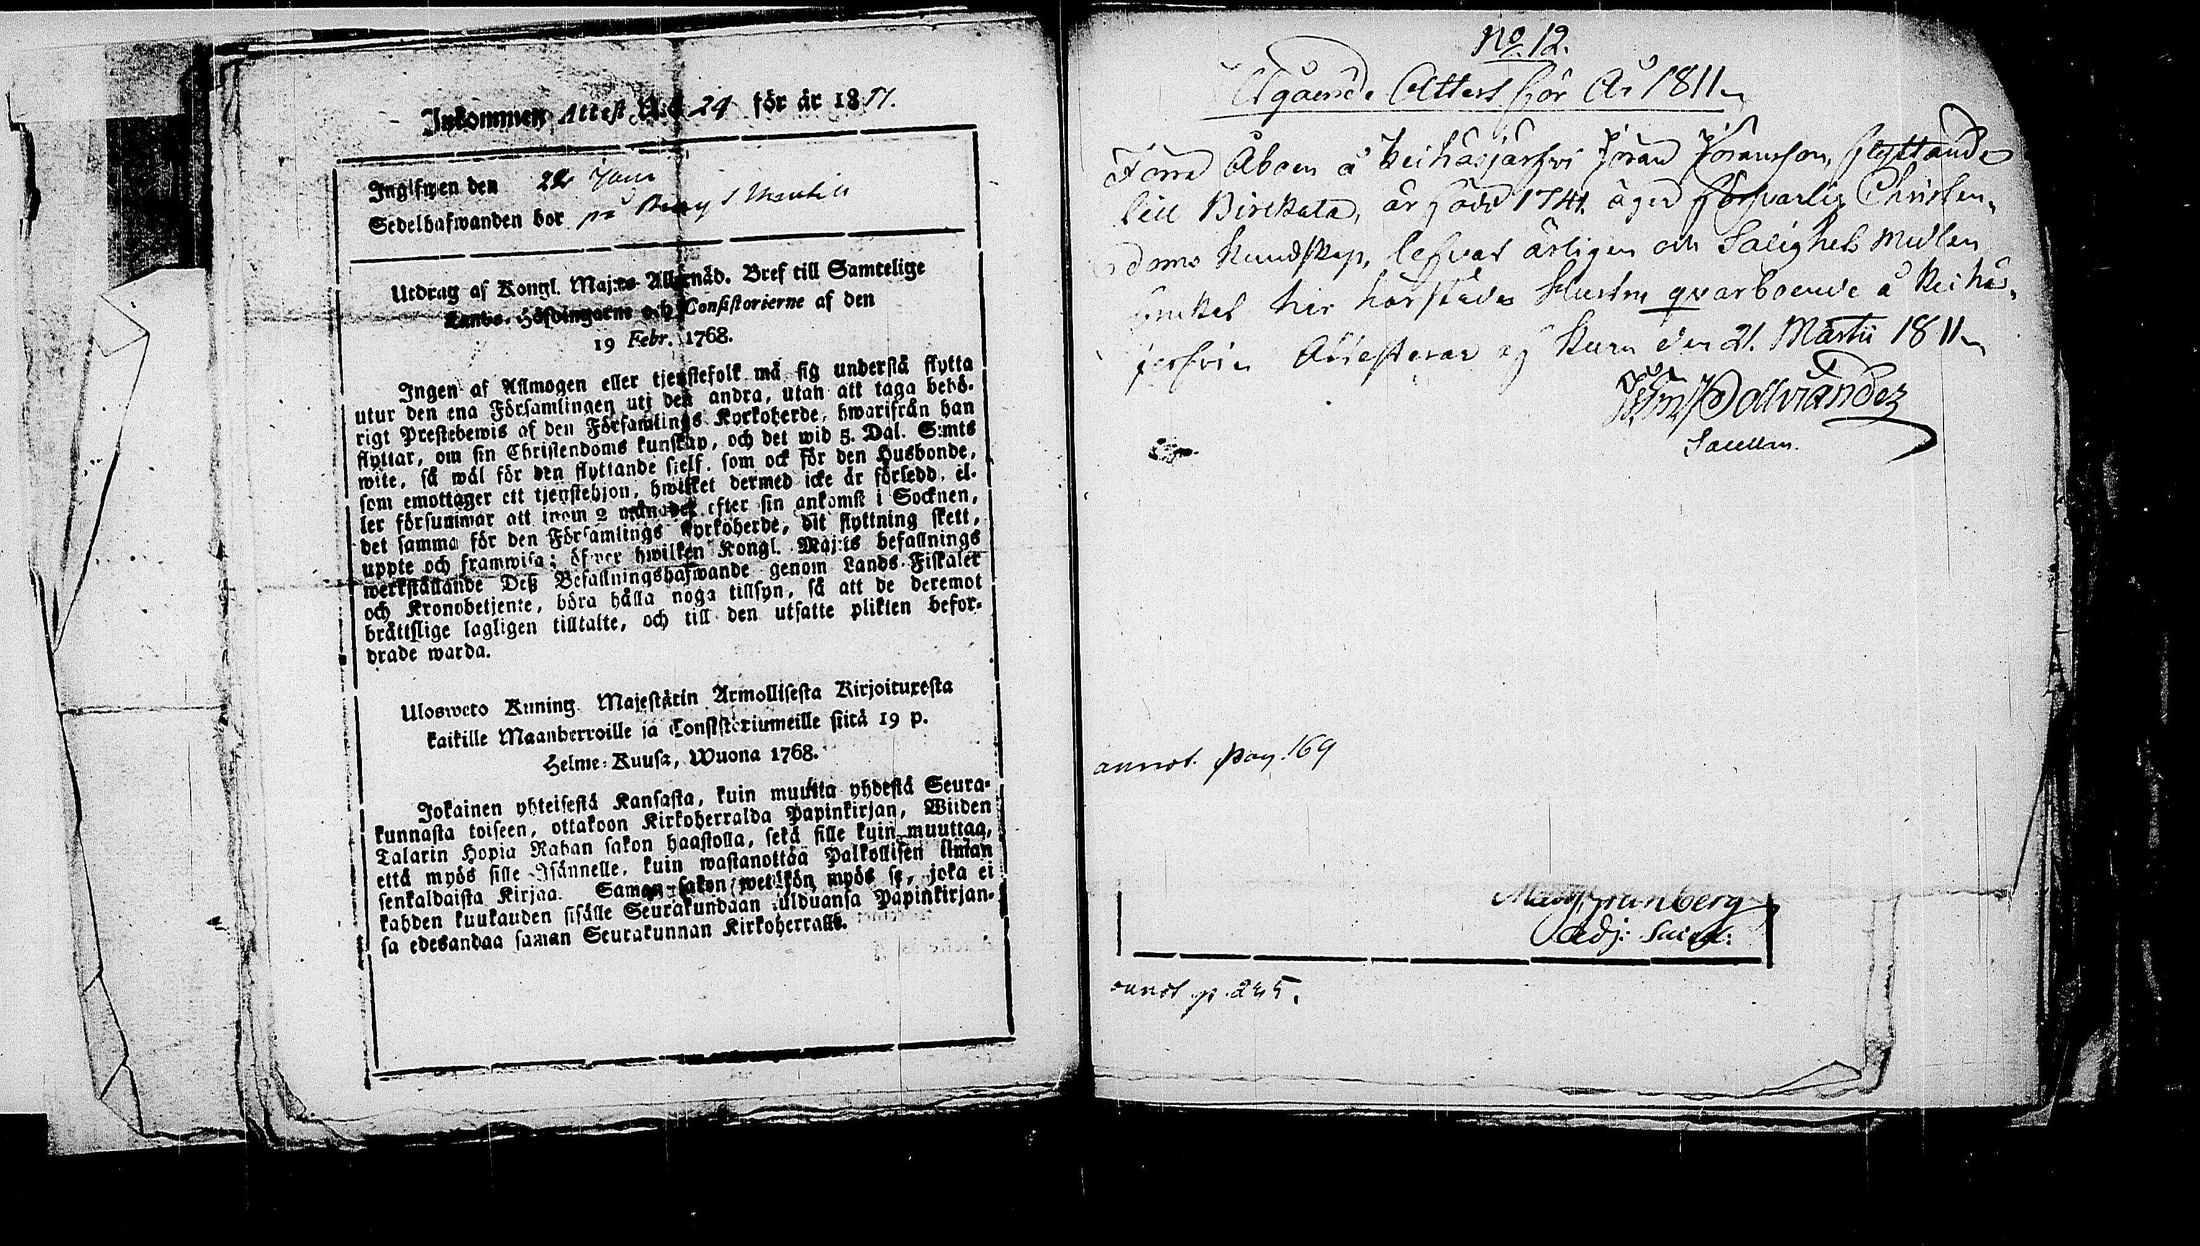 Inkommen Attest N:o 24 för år 1811.
Ingifwen den 22 Junii
Sedelhafwanden bor på
Utdrag af Kongl. Maj:ts Allernåd. Bref till Samtelige
Lands-Höfdingarne och Consistorierne af den
19 Febr. 1768.
Ingen af Allmogen eller tjenstefolk må sig understå flytta
utur den ena Församlingen uti den andra, utan att taga behö-
rigt Prestebewis af den Församlings Kyrkoherde, hwarifrån han
flyttar, om sin Christendoms kunskap, och det wid 5. Dal. S:mts
wite, så wäl för den flyttande sielf, som ock för den Husbonde,
som emottager ett tjenstehjon, hwilket dermed icke är försedd, el-
ler försummar att inom 2 månader efter sin ankomst i Socknen,
det samma för den Församlings Kyrkoherde, dit flyttning skett,
uppte och framwisa; öfwer hwilken Kongl. Maj:ts befallnings
werkställande Deß Befallningshafwande genom Lands-Fiskaler
och Kronobetjente, böra hålla noga tillsyn, så att de deremot
bråttslige lagligen tilltalte, och till den utsatte plikten befor-
drade warda.
Ulosweto Kuning. Majestätin Armollisesta Kirjoituxesta
kaikille Maanherroille ja Consistoriumeille siitä 19 p.
Helme-Kuusa, Wuona 1768.
Jokainen yhteisestä Kansasta, kuin muutta yhdestä Seura-
kunnasta toiseen, ottakoon Kirkoherralda Papinkirjan, Wiiden
Talarin Hopia Rahan sakon haastolla, sekä sille kuin muuttaa,
että myös sille Isännelle, kuin wastanottaa Palkollisen ilman
senkaldaista Kirjaa. Saman sakon wetäkön myös se, joka ei
kahden kuukauden sisälle Seurakundaan tulduansa Papinkirjan-
sa edesandaa saman Seurakunnan Kirkoherralle.
No. 12.
Utgående Attest för År 1811
Förre Åboen å Keihäsjärfvi Jöran Jöransson, flyttande
till Birckala, är född 1741. äger försvarlig Christen-
doms Kundskap, lefvat ärligen och Salighets Medlen
brukat här hörstädes Hustru qvarboende å Keihäs-
jerfvi. Attesteras af Kuru den 21. Martii 1811
Sacellan.
annot. pag. 169
Granberg
Adj: Sacell:
annot p. 245.